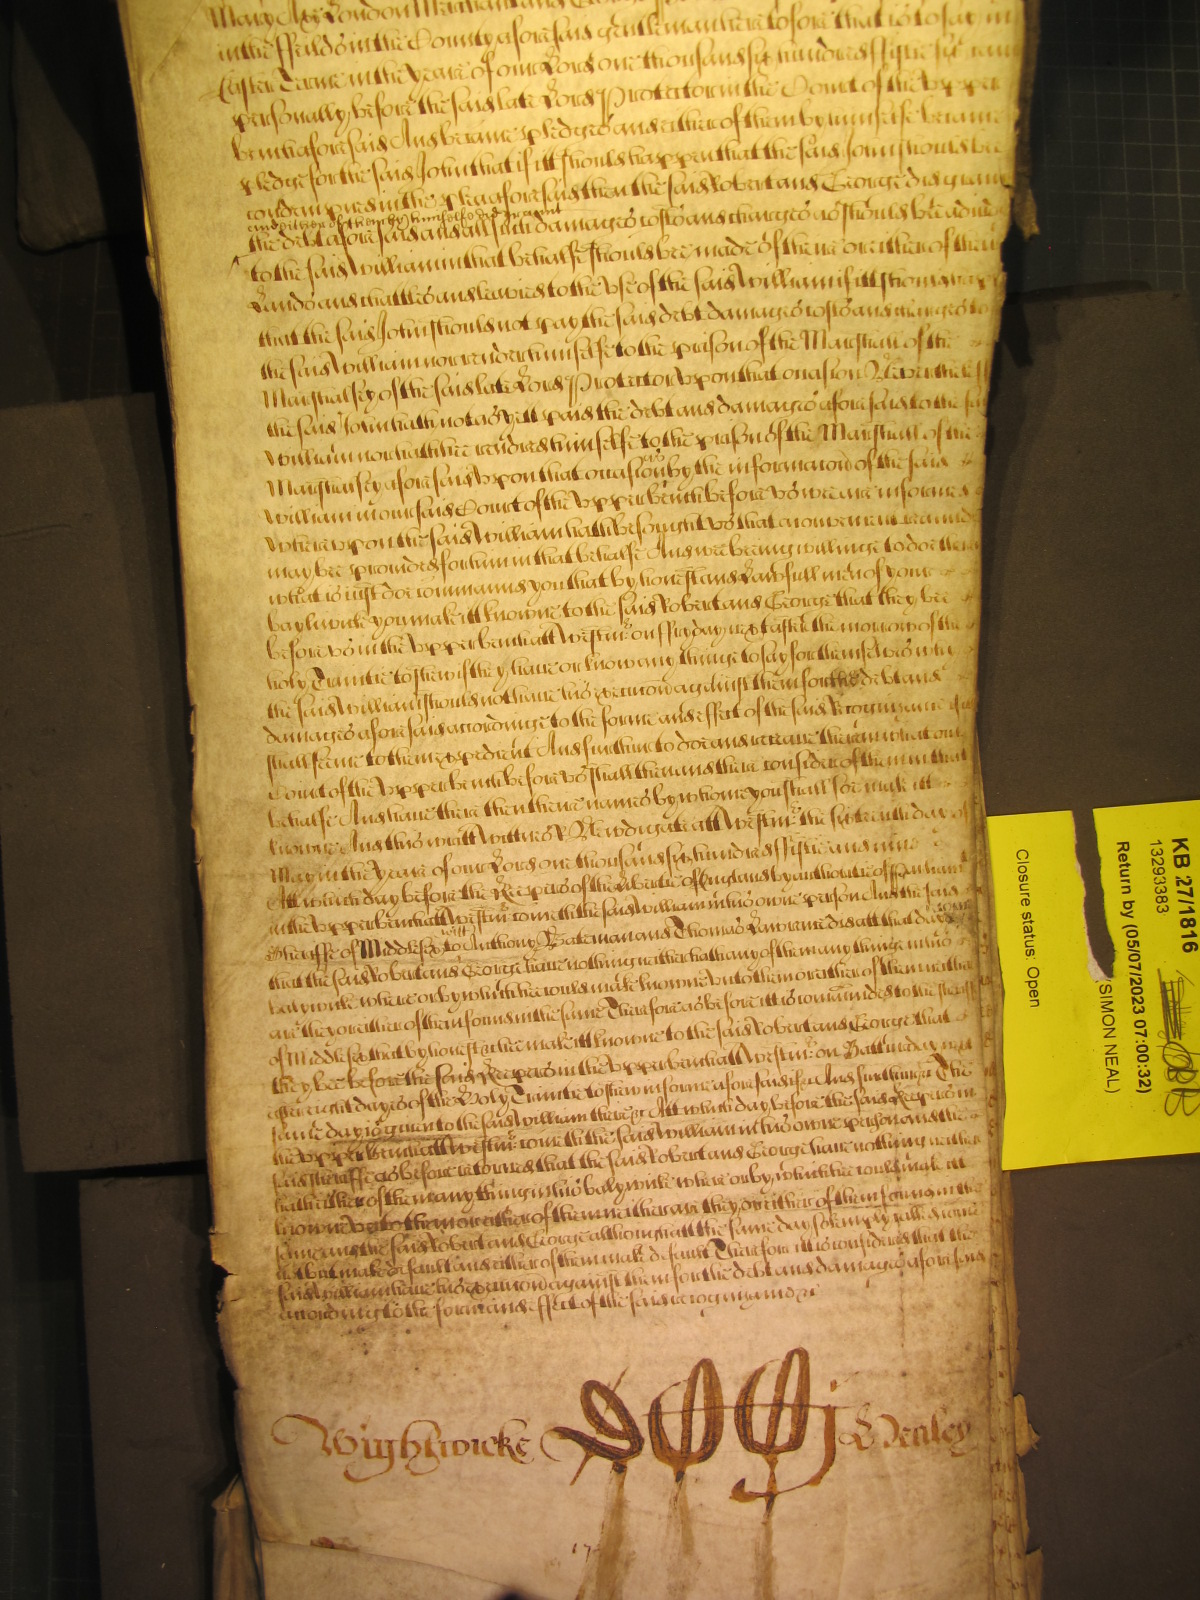 in the ffeilds in the County aforesaid gentleman heretofore that is to say in
Easter Terme in the yeare of our Lord one thousand six hundred fiftie six came
personally before the said late Lord Protector in the Court of the Upper
bench aforesaid And became pledges and either of them by himselfe became
pledge for the said John that if itt should happen that the said John should bee
condempned in the plea aforesaid then the said Robert and George did graunt
and either of them by himselfe did graunt
the debt aforesaid and all such damages costs and charges as should bee adiudged
to the said William in that behalfe should bee made of their or either of their
Lands and chattles and leavied to the use of the said William if itt should happen
that the said John should not pay the said debt damages costs and charges to
the said William nor render himselfe to the prison of the Marshall of the
Marshalsey of the said late Lord Protector upon that occasion Neverthelesse
the said John hath not as yett paid the debt and damages aforesaid to the said
William nor hath hee rendred himselfe to the prison of the Marshall of the
Marshalsey aforesaid upon that occasion as by the information of the said
William in our said Court of the Upper bench before us wee are informed
whereupon the said William hath besought us that a convenient remedie
may bee provided for him in that behalfe And wee being willinge to doe therein
what is iust doe command you that by honest and Lawfull men of your
baylywicke you make itt knowne to the said Robert and George that they bee
before us in the Upper bench att Westm on ffryday next after the morrow of the
holy Trinitie to shew if they have or know any thinge to say for themselves why
the said William should not have his execution against them for the debt and
damages aforesaid accordinge to the forme and effect of the said Recognizance if itt
shall seeme to them expedient And further to doe and receave therein what our
Court of the Upper bench before us shall then and there consider of them in that
behalfe And have there then their names by whome you shall soe make itt
knowne And this writt Wittnes R Newdigate att Westm the sixteenth day of
May in the yeare of our Lord one thousand six hundred fiftie and nine
Att which day before the Keepers of the Libertie of England by authoritie of Parliament
in the Upper bench att Westm cometh the said William in his owne person And the said
Sheriffe of Middlesex to witt Anthony Bateman and Thomas Lawrence
that the said Robert and George have nothing neither hath any of them any thinge in his
baylywicke where or by which hee could make knowne unto them or either of them neither
are they or either of them found in the same Therefore as before itt is commanded to the Sheriffe
of Middlesex that by honest &c hee make itt knowne to the said Robert and George that
they bee before the said Keepers in the Upper bench att Westm on Satturday next
after eight dayes of the Holy Trinitie to shew in forme aforesaid if &c And further &c The
same day is given to the said William there &c Att which day before the said Keepers in
the Upper bench att Westm cometh the said William in his owne person and the
said sheriffe as before retorned that the said Robert and George have nothing neither
hath either of them any thing in his baylywicke where or by which hee could make itt
knowne unto them or either of them neither are they or either of them found in the
same and the said Robert and George although att the same day solemply called came
not but make default and either of them make default Therefore itt is considered that the
said William have his execution against them for the debt and damages aforesaid
accordinge to the forme and effect of the said recognizance &c
Wightwicke
Henley
KB 27/1816
13293383
Return by (05/07/2023 07:00:32)
(SIMON NEAL)
Closure status: Open